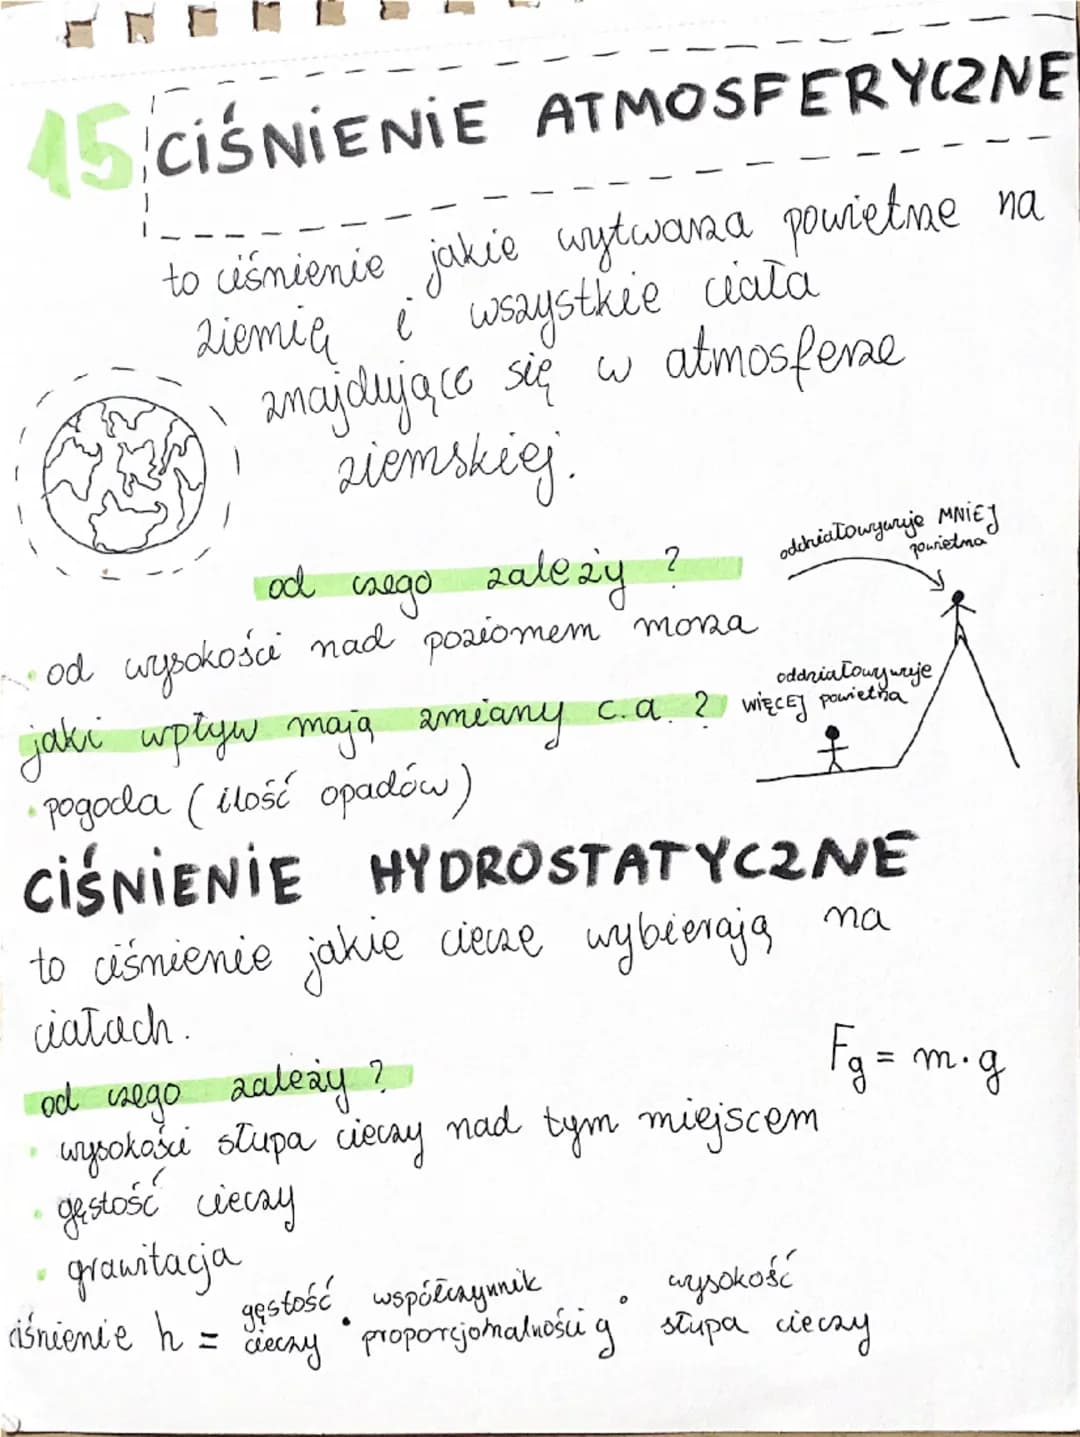 15 CIŚNIENIE ATMOSFERYCZNE
to ciśnienie jakie wytwarza powietrze na
ziemię i wszystkie ciała
znajdujące się w atmosferze
ziemskiej.
oddziałowywuje MNIEJ
powietrza
od czego zależy ?
• od wysokości nad poziomem morza
oddziałowywuje
WIĘCEJ powietrza
jaki wpływ mają zmiany c.a. ?
• pogoda ( ilość opadów )
CIŚNIENIE HYDROSTATYCZNE
to ciśnienie jakie ciecze wybierają na
ciałach.
Fg = m·g
od czego zależy ?
• wysokości słupa cieczy nad tym miejscem
• gęstość cieczy
• grawitacja
ciśnienie h = gęstość cieczy • współczynnik proporcjonalności g • wysokość słupa cieczy